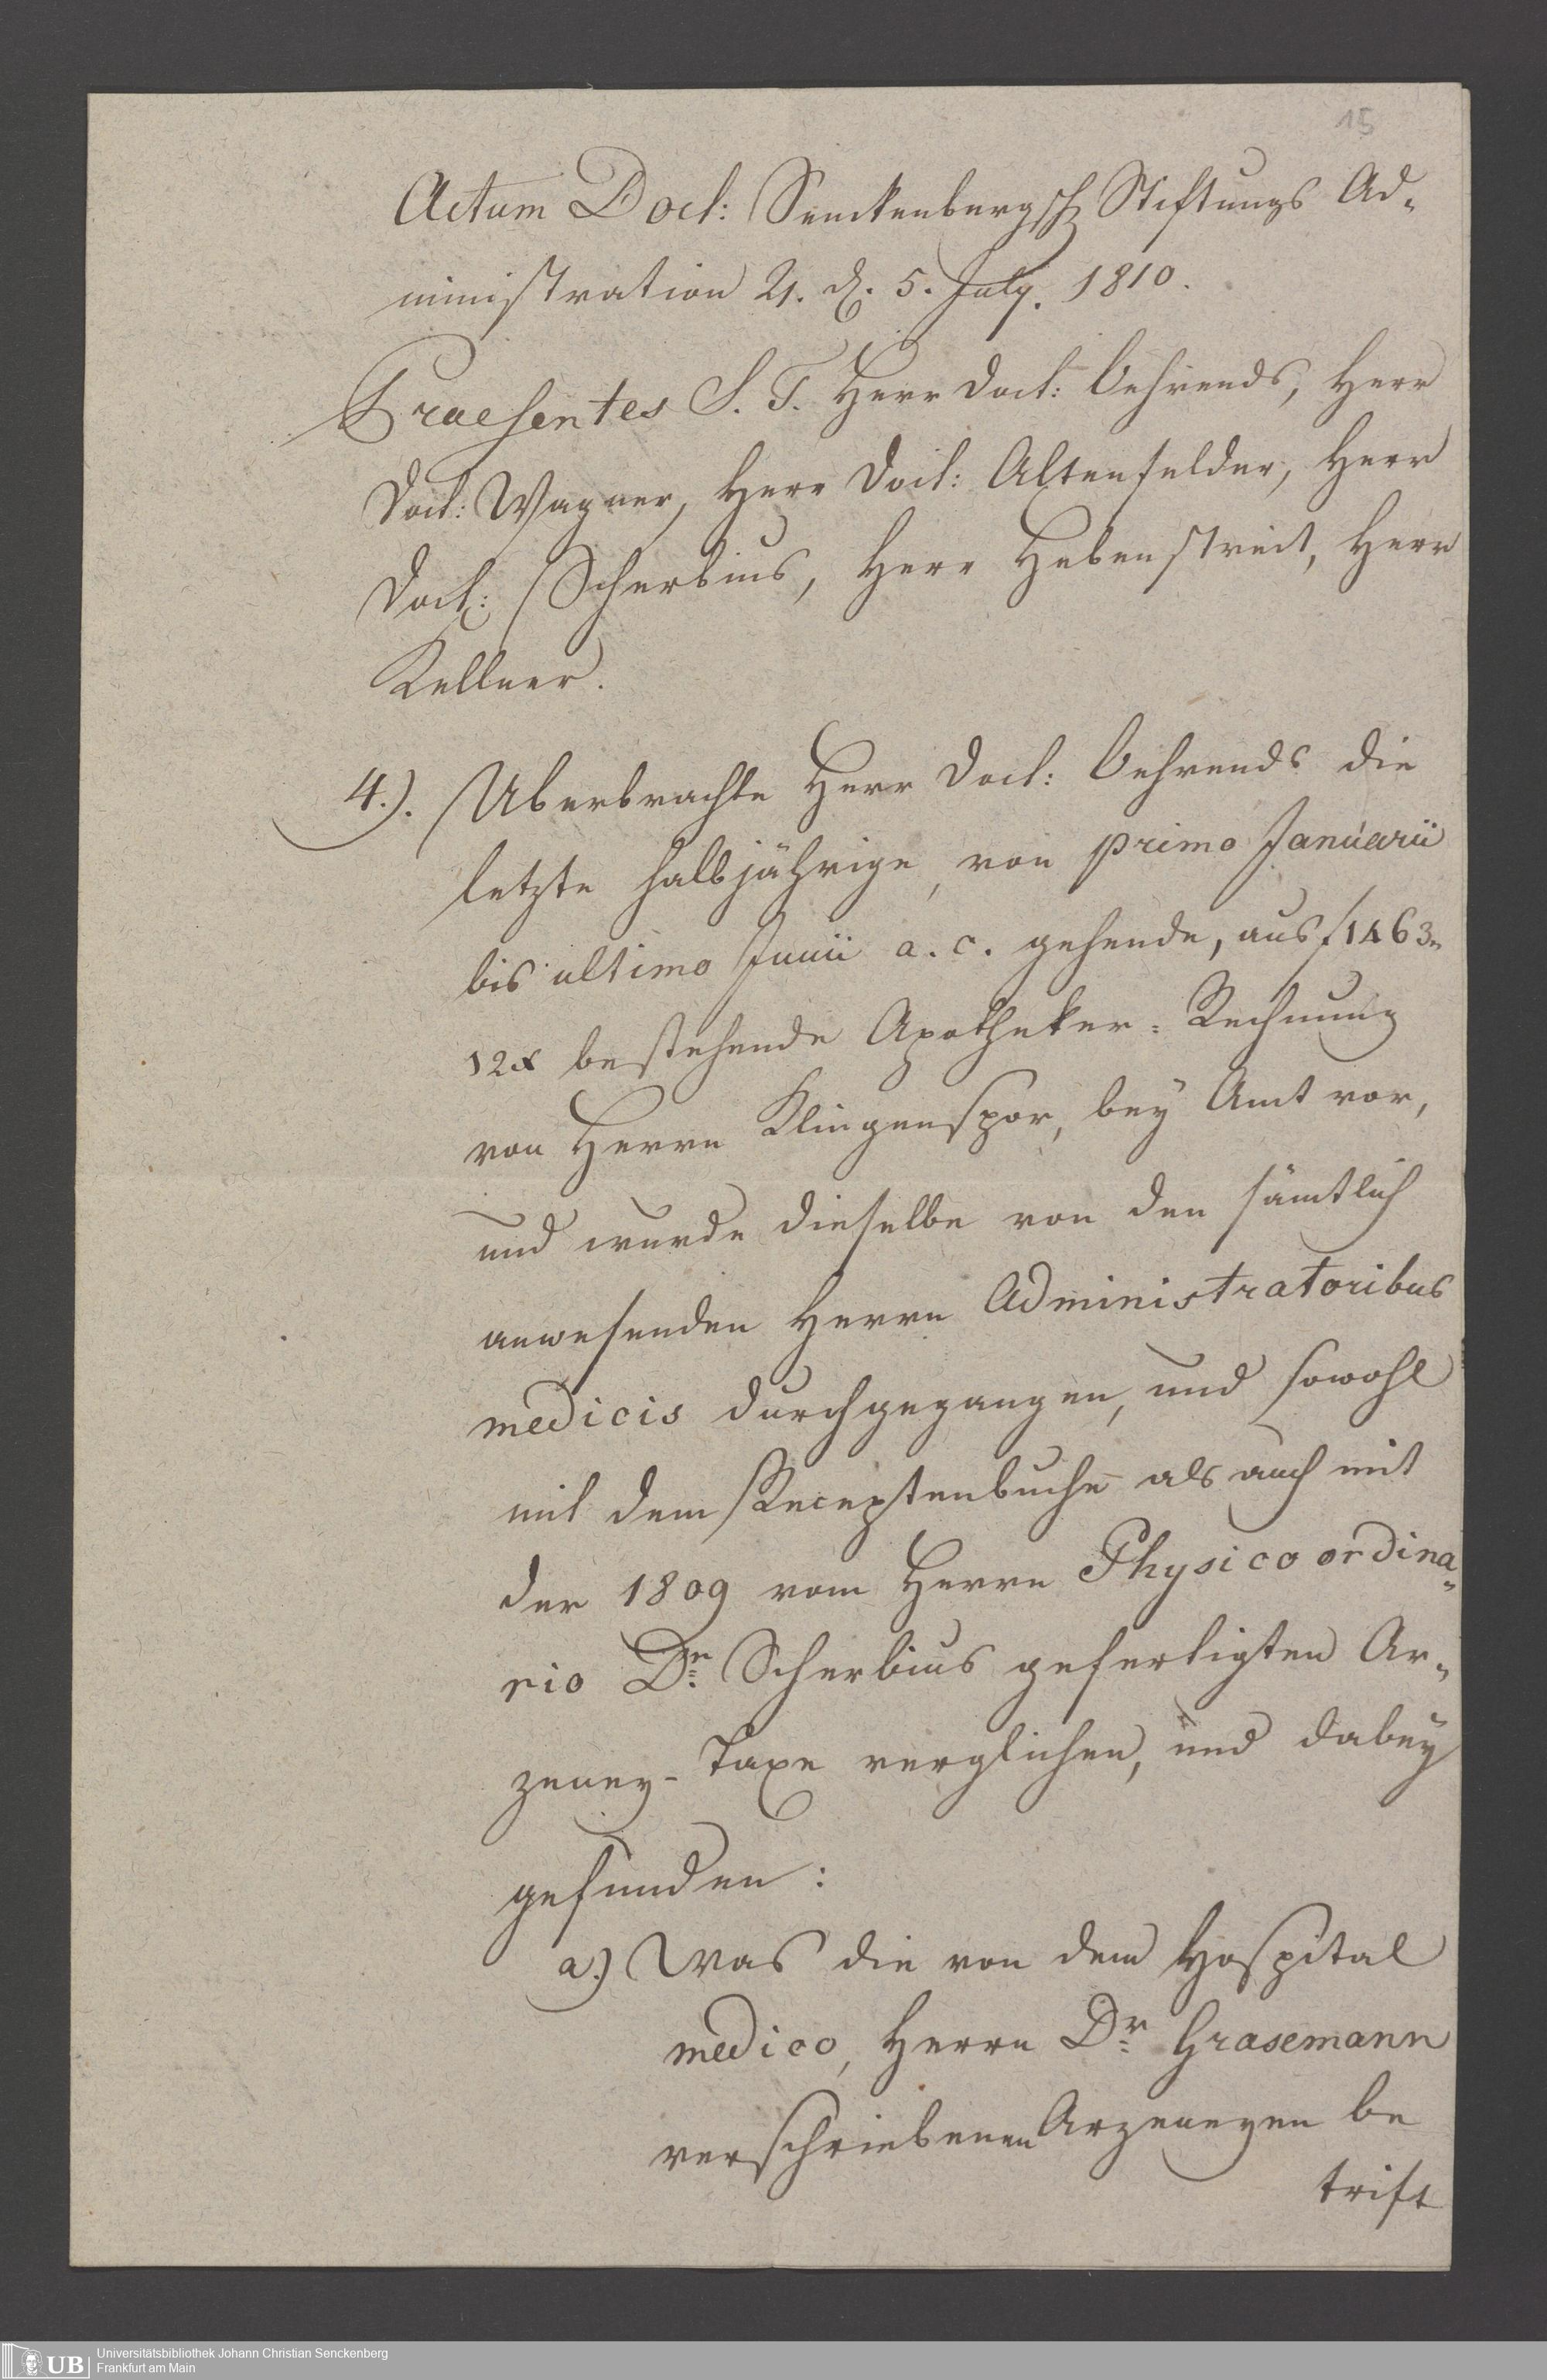 15
Actum Doct: Senckenbergsch Stiftungs Ad-
ministration d. 5. July. 1810.
Praesentes S. T. Herr Doct: Behrends, Herr
Doct: Wagner, Herr Doct: Altenfelder, Herr
Doct: Scherbius, Herr Hebenstreit, Herr
Kellner.
4.). Uberbrachte Herr Doct: Behrends die
letzte halbjährige, von primo Januarii
bis ultimo Junii a. c. gehende, aus f 1463„
12x bestehende Apotheker-Rechnung
von Herrn Klingenspor, bey Amt vor,
und wurde dieselbe von den sämtlich
anwesenden Herrn Administratoribus
medicis durchgegangen, und sowohl
mit dem Receptenbuche als auch mit
der 1809 vom Herrn Physico ordina-
rio Dr. Scherbius gefertigten Ar-
zeney-Taxe verglichen, und dabey
gefunden:
a.) Was die von dem Hospital
medico, Herrn Dr. Grasemann
verschriebenen Arzeneyen be
trift
UB
Universitätsbibliothek Johann Christian Senckenberg
Frankfurt am Main